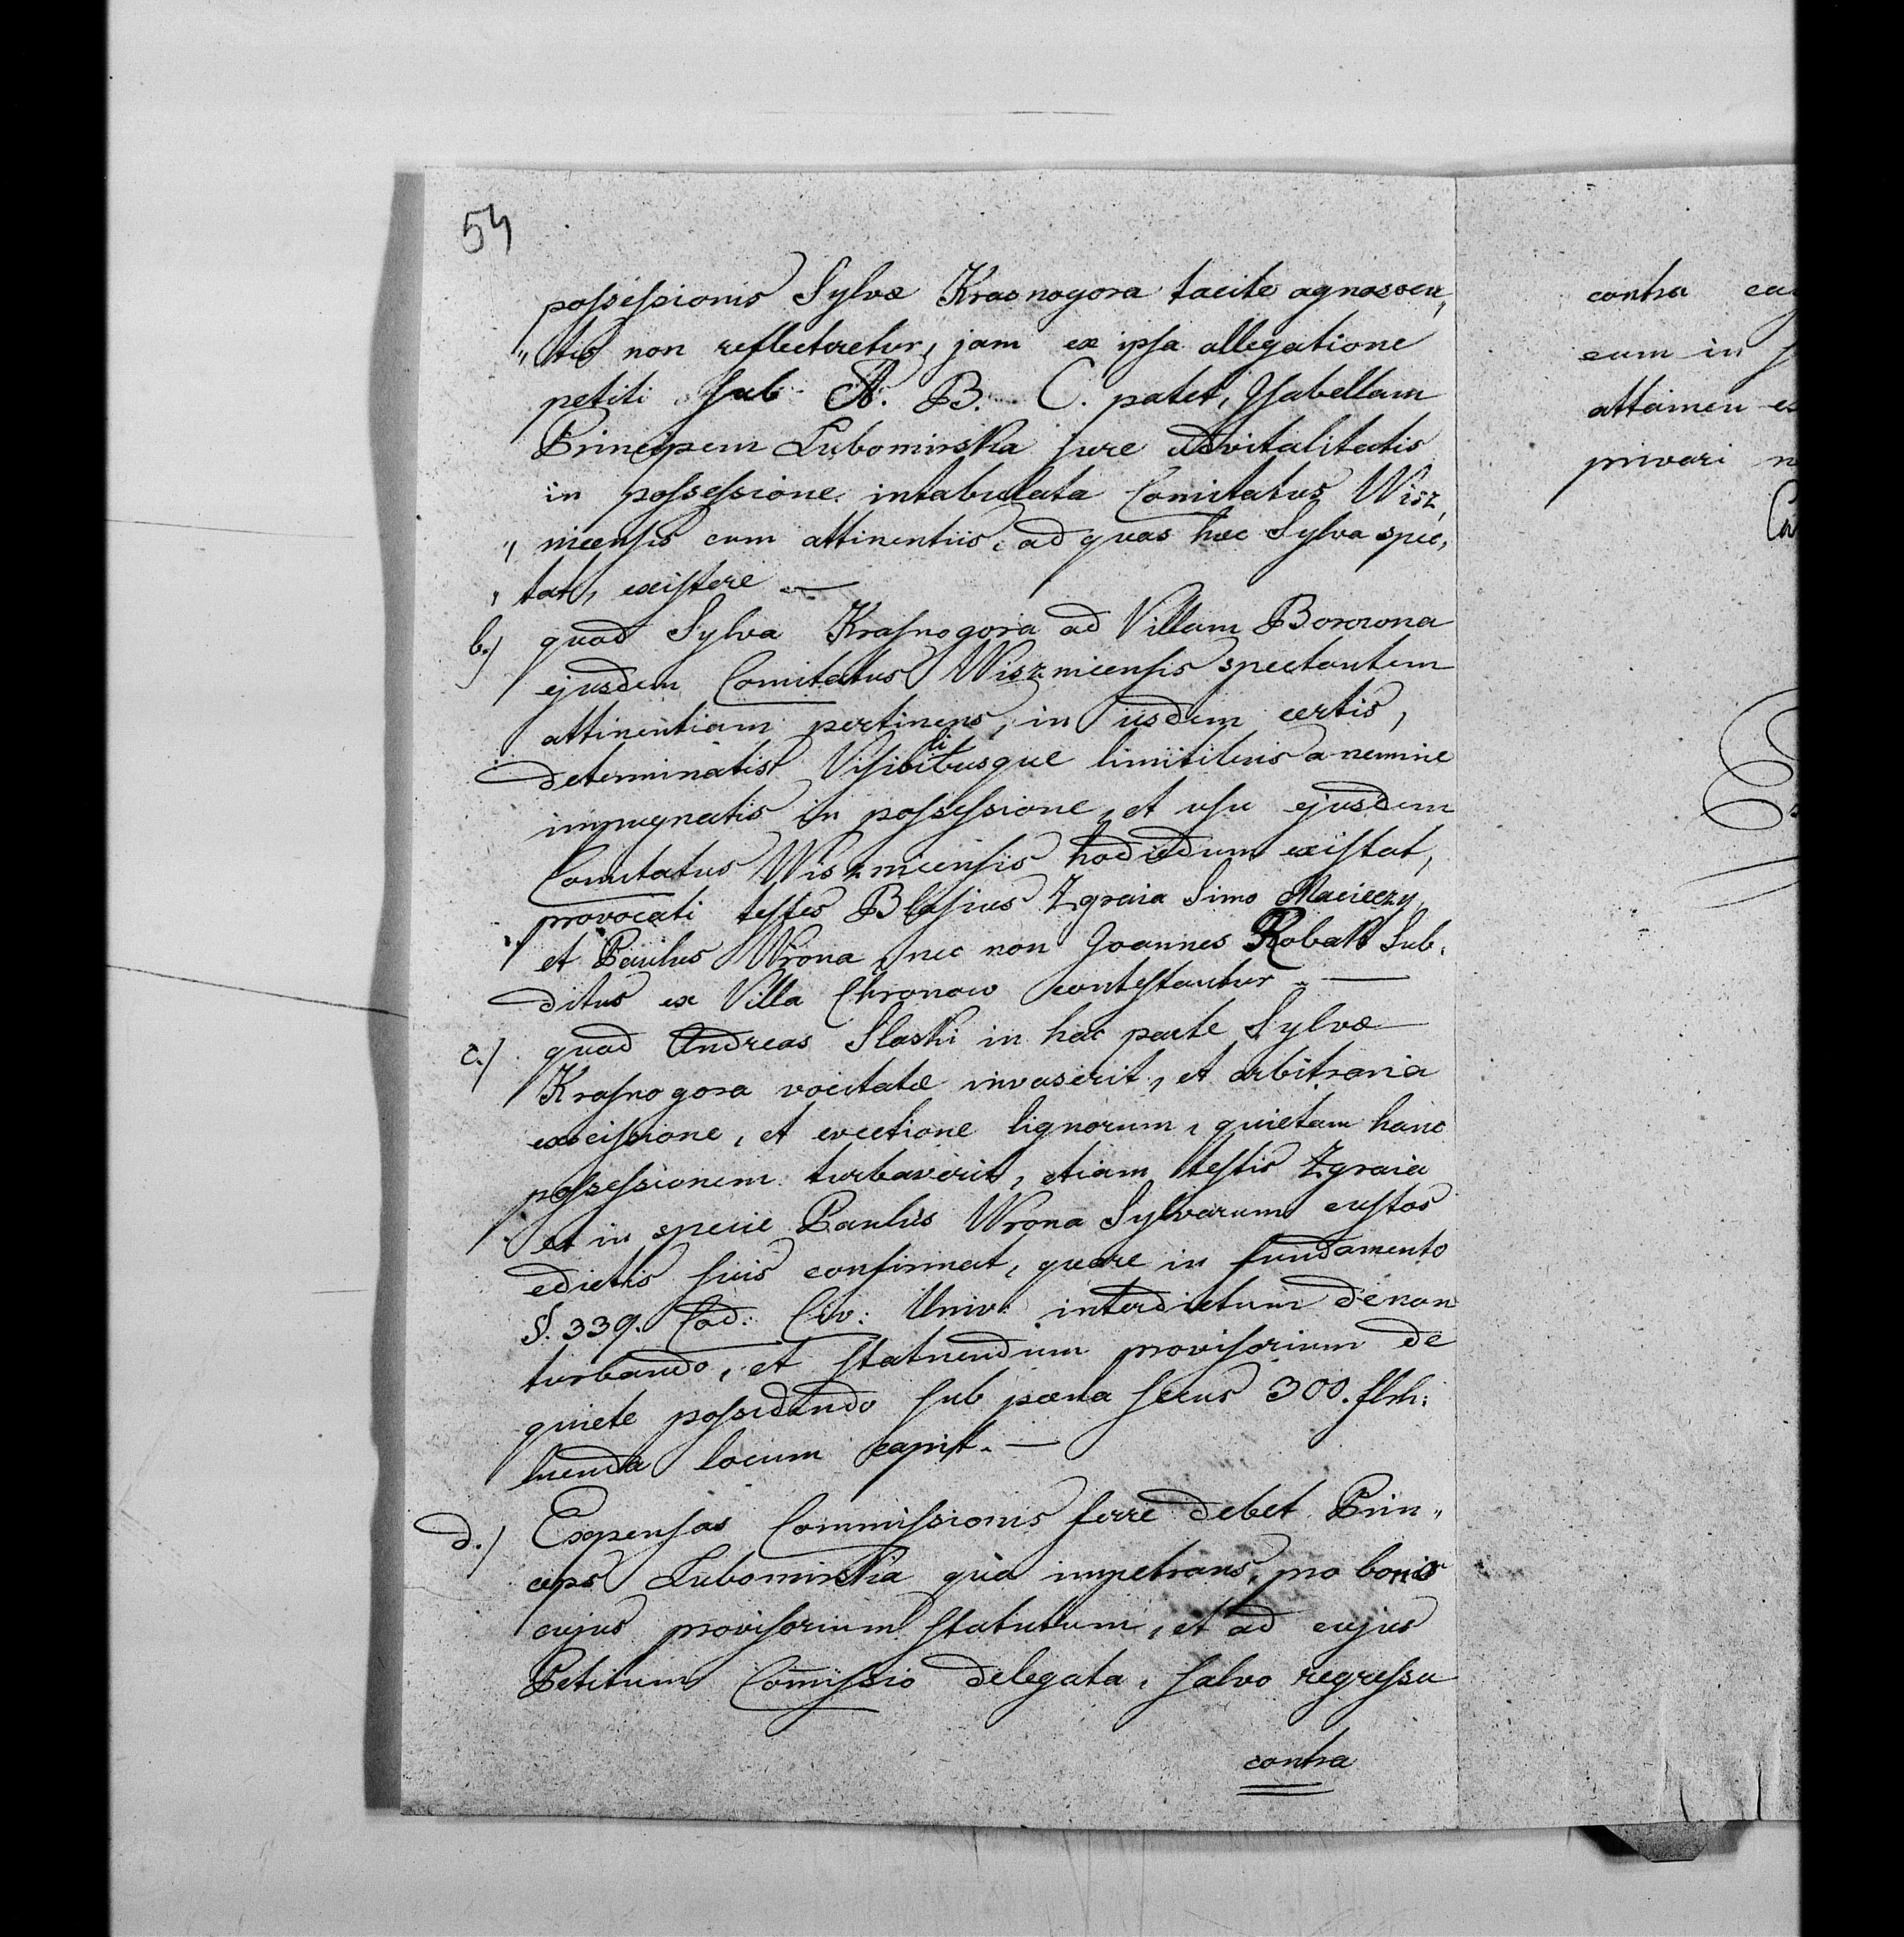 54
possessionis Sylvæ Krasnogora tacite agnoscen„
„tis non reflecteretur, jam ex ipsa allegatione
petiti sub A. B. C. patet, Isabellam
Principem Lubomirska jure advitalitatis
in possessione intabulata Comitatus Wisz„
„nicensis cum attinentiis, ad quas hæc Sylva spec„
„tat, existere —
b.) quod Sylva Krasnogora ad Villam Borowna
ejusdem Comitatus Wisznicensis spectantem
attinentiam pertinens, in iisdem certis,
determinatis Visibilibusque limitibus a nemine
impugnatis in possessione, et usu ejusdem
Comitatus Wisznicensis hodiedum existat,
provocati testes Blasius Zgraia Simo Macieczy,
et Paulus Wrona, nec non Joannes Robak Sub„
ditus ex Villa Chronow contestantur. —
c.) quod Andreas Slaski in hac parte Sylvæ
Krasnogora vocitatæ invaserit, et arbitraria
excissione, et evectione lignorum, quietam hanc
possessionem turbaverit, etiam testis Zgraia
et in specie Paulus Wrona Sylvarum custos
edictis suis confirmat, quare in fundamento
§. 339. Cod: Civ: Univ: interdictum de non
turbando, et statuendum provisorium de
quiete possidendo sub pœna secus 300. flrh:
luenda locum capit. —
d.) Expensas Commissionis ferre debet Prin„
ceps Lubomirska qua impetrans, pro bonis
cujus provisorium statutum, et ad cujus
Petitum Comissio delegata, salvo regressu
contra
contra
eum in
attamen
privari